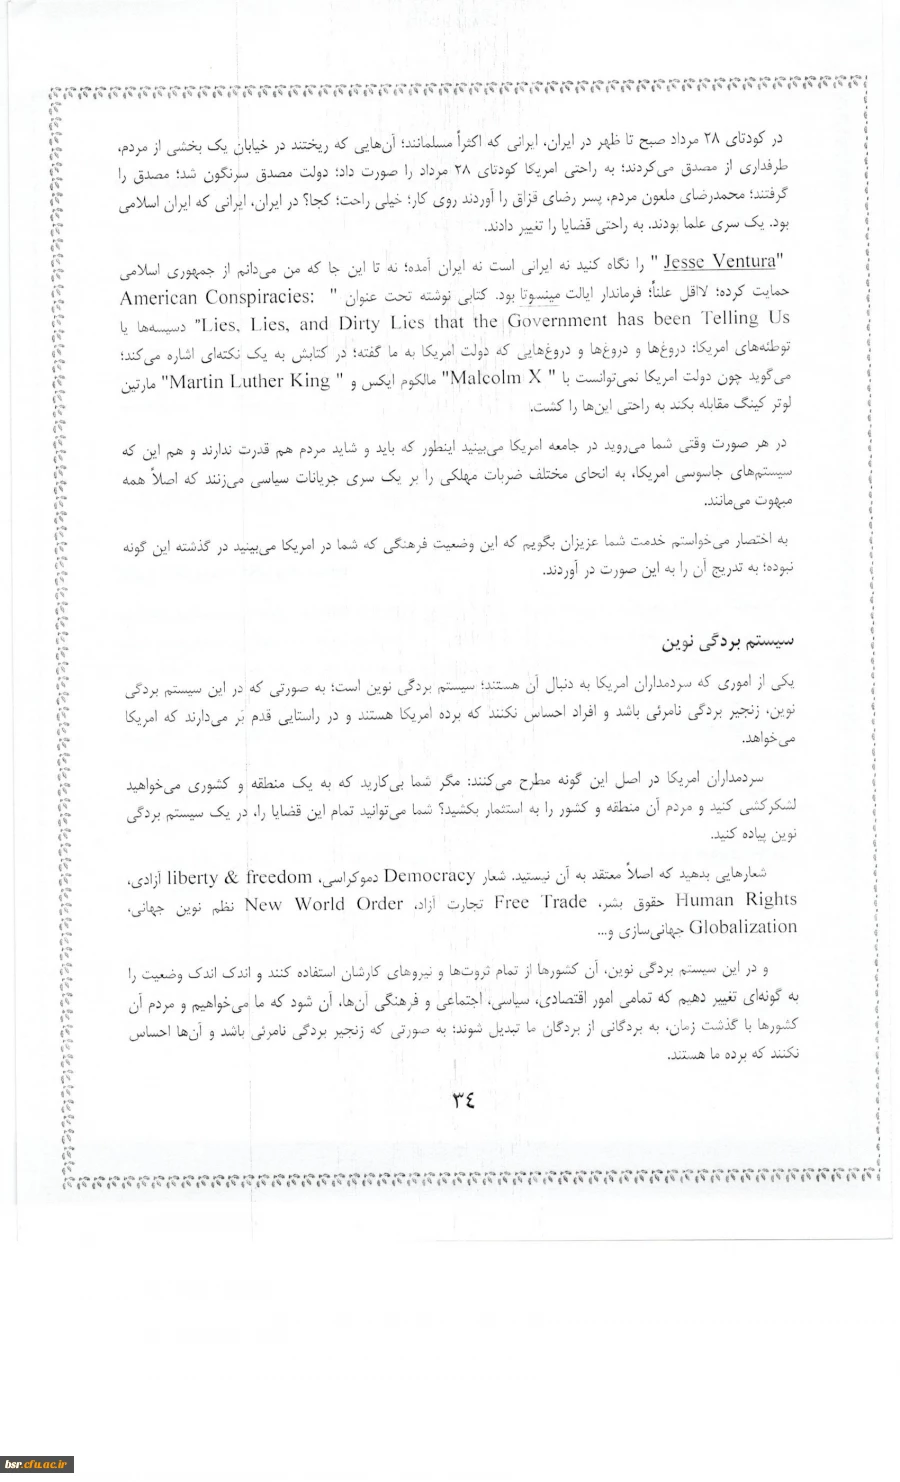 در کودتای ۲۸ مرداد صبح تا ظهر در ایران، ایرانی که اکثراً مسلمانند؛ آن‌هایی که ریختند در خیابان یک بخشی از مردم،
طرفداری از مصدق می‌کردند؛ به راحتی امریکا کودتای ۲۸ مرداد را صورت داد؛ دولت مصدق سرنگون شد؛ مصدق را
گرفتند؛ محمدرضای ملعون مردم، پسر رضای قزاق را آوردند روی کار؛ خیلی راحت؛ کجا؟ در ایران، ایرانی که ایران اسلامی
بود. یک سری علما بودند. به راحتی قضایا را تغییر دادند.
"Jesse Ventura" را نگاه کنید نه ایرانی است نه ایران آمده؛ نه تا این جا که من می‌دانم از جمهوری اسلامی
حمایت کرده؛ لااقل علناً؛ فرماندار ایالت مینسوتا بود. کتابی نوشته تحت عنوان " American Conspiracies:
Lies, Lies, and Dirty Lies that the Government has been Telling Us" دسیسه‌ها یا
توطئه‌های امریکا: دروغ‌ها و دروغ‌ها و دروغ‌هایی که دولت امریکا به ما گفته؛ در کتابش به یک نکته‌ای اشاره می‌کند؛
می‌گوید چون دولت امریکا نمی‌توانست با " Malcolm X" مالکوم ایکس و " Martin Luther King" مارتین
لوتر کینگ مقابله بکند به راحتی این‌ها را کشت.
در هر صورت وقتی شما می‌روید در جامعه امریکا می‌بینید اینطور که باید و شاید مردم هم قدرت ندارند و هم این که
سیستم‌های جاسوسی امریکا، به انحای مختلف ضربات مهلکی را بر یک سری جریانات سیاسی می‌زنند که اصلاً همه
مبهوت می‌مانند.
به اختصار می‌خواستم خدمت شما عزیزان بگویم که این وضعیت فرهنگی که شما در امریکا می‌بینید در گذشته این گونه
نبوده؛ به تدریج آن را به این صورت در آوردند.
سیستم بردگی نوین
یکی از اموری که سردمداران امریکا به دنبال آن هستند؛ سیستم بردگی نوین است؛ به صورتی که در این سیستم بردگی
نوین، زنجیر بردگی نامرئی باشد و افراد احساس نکنند که برده امریکا هستند و در راستایی قدم بر می‌دارند که امریکا
می‌خواهد.
سردمداران امریکا در اصل این گونه مطرح می‌کنند: مگر شما بی‌کارید که به یک منطقه و کشوری می‌خواهید
لشکرکشی کنید و مردم آن منطقه و کشور را به استثمار بکشید؟ شما می‌توانید تمام این قضایا را، در یک سیستم بردگی
نوین پیاده کنید.
شعارهایی بدهید که اصلاً معتقد به آن نیستید. شعار Democracy دموکراسی، liberty & freedom آزادی،
Human Rights حقوق بشر، Free Trade تجارت آزاد، New World Order نظم نوین جهانی،
Globalization جهانی‌سازی و...
و در این سیستم بردگی نوین، آن کشورها از تمام ثروت‌ها و نیروهای کارشان استفاده کنند و اندک اندک وضعیت را
به گونه‌ای تغییر دهیم که تمامی امور اقتصادی، سیاسی، اجتماعی و فرهنگی آن‌ها، آن شود که ما می‌خواهیم و مردم آن
کشورها با گذشت زمان، به بردگانی از بردگان ما تبدیل شوند؛ به صورتی که زنجیر بردگی نامرئی باشد و آن‌ها احساس
نکنند که برده ما هستند.
٣٤
bsr.cfu.ac.ir